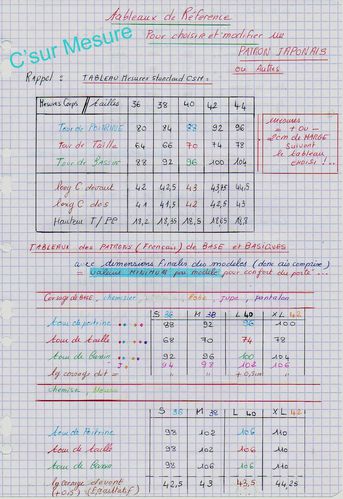 Tableaux de Référence
C'sur Mesure
Pour choisir et modifier un
PATRON JAPONAIS
ou Autres
Rappel : TABLEAU Mesures Standard CSM :
Mesures Corps / tailles 36 38 40 42 44
Tour de POITRINE 80 84 88 92 96
Tour de Taille 64 66 70 74 78
Tour de Bassin 88 92 96 100 104
long C devant 42 42,5 43 43,75 44,5
long C dos 41 41,5 42 42,5 43
Hauteur T / 18,2 18,35 18,5 18,65 18,8
MESURES
= + ou -
2cm de MARGE
Suivant
le tableau
CHOISI !...
TABLEAUX des PATRONS (Francais) de BASE et BASIQUES
avec dimensions Finales des modèles (donc aisance comprise)
= valeurs MINIMUM par modèle pour confort du porté ...
Corsage de BASE, chemisier, Robe, Jupe, pantalon
S 36 M 38 L 40 XL 42
tour de poitrine 88 92 96 100
tour de taille 68 70 74 78
tour de bassin 92 96 100 104
94 98 102 106
lg corsage dvt = " " +0,5cm "
chemise,
S 36 M 38 L 40 XL 42
tour de Poitrine 98 102 106 110
tour de taille 98 102 106 110
tour de Bassin 98 102 106 110
lg corsage devant 42,5 43 43,5 44,25
(+0,5)